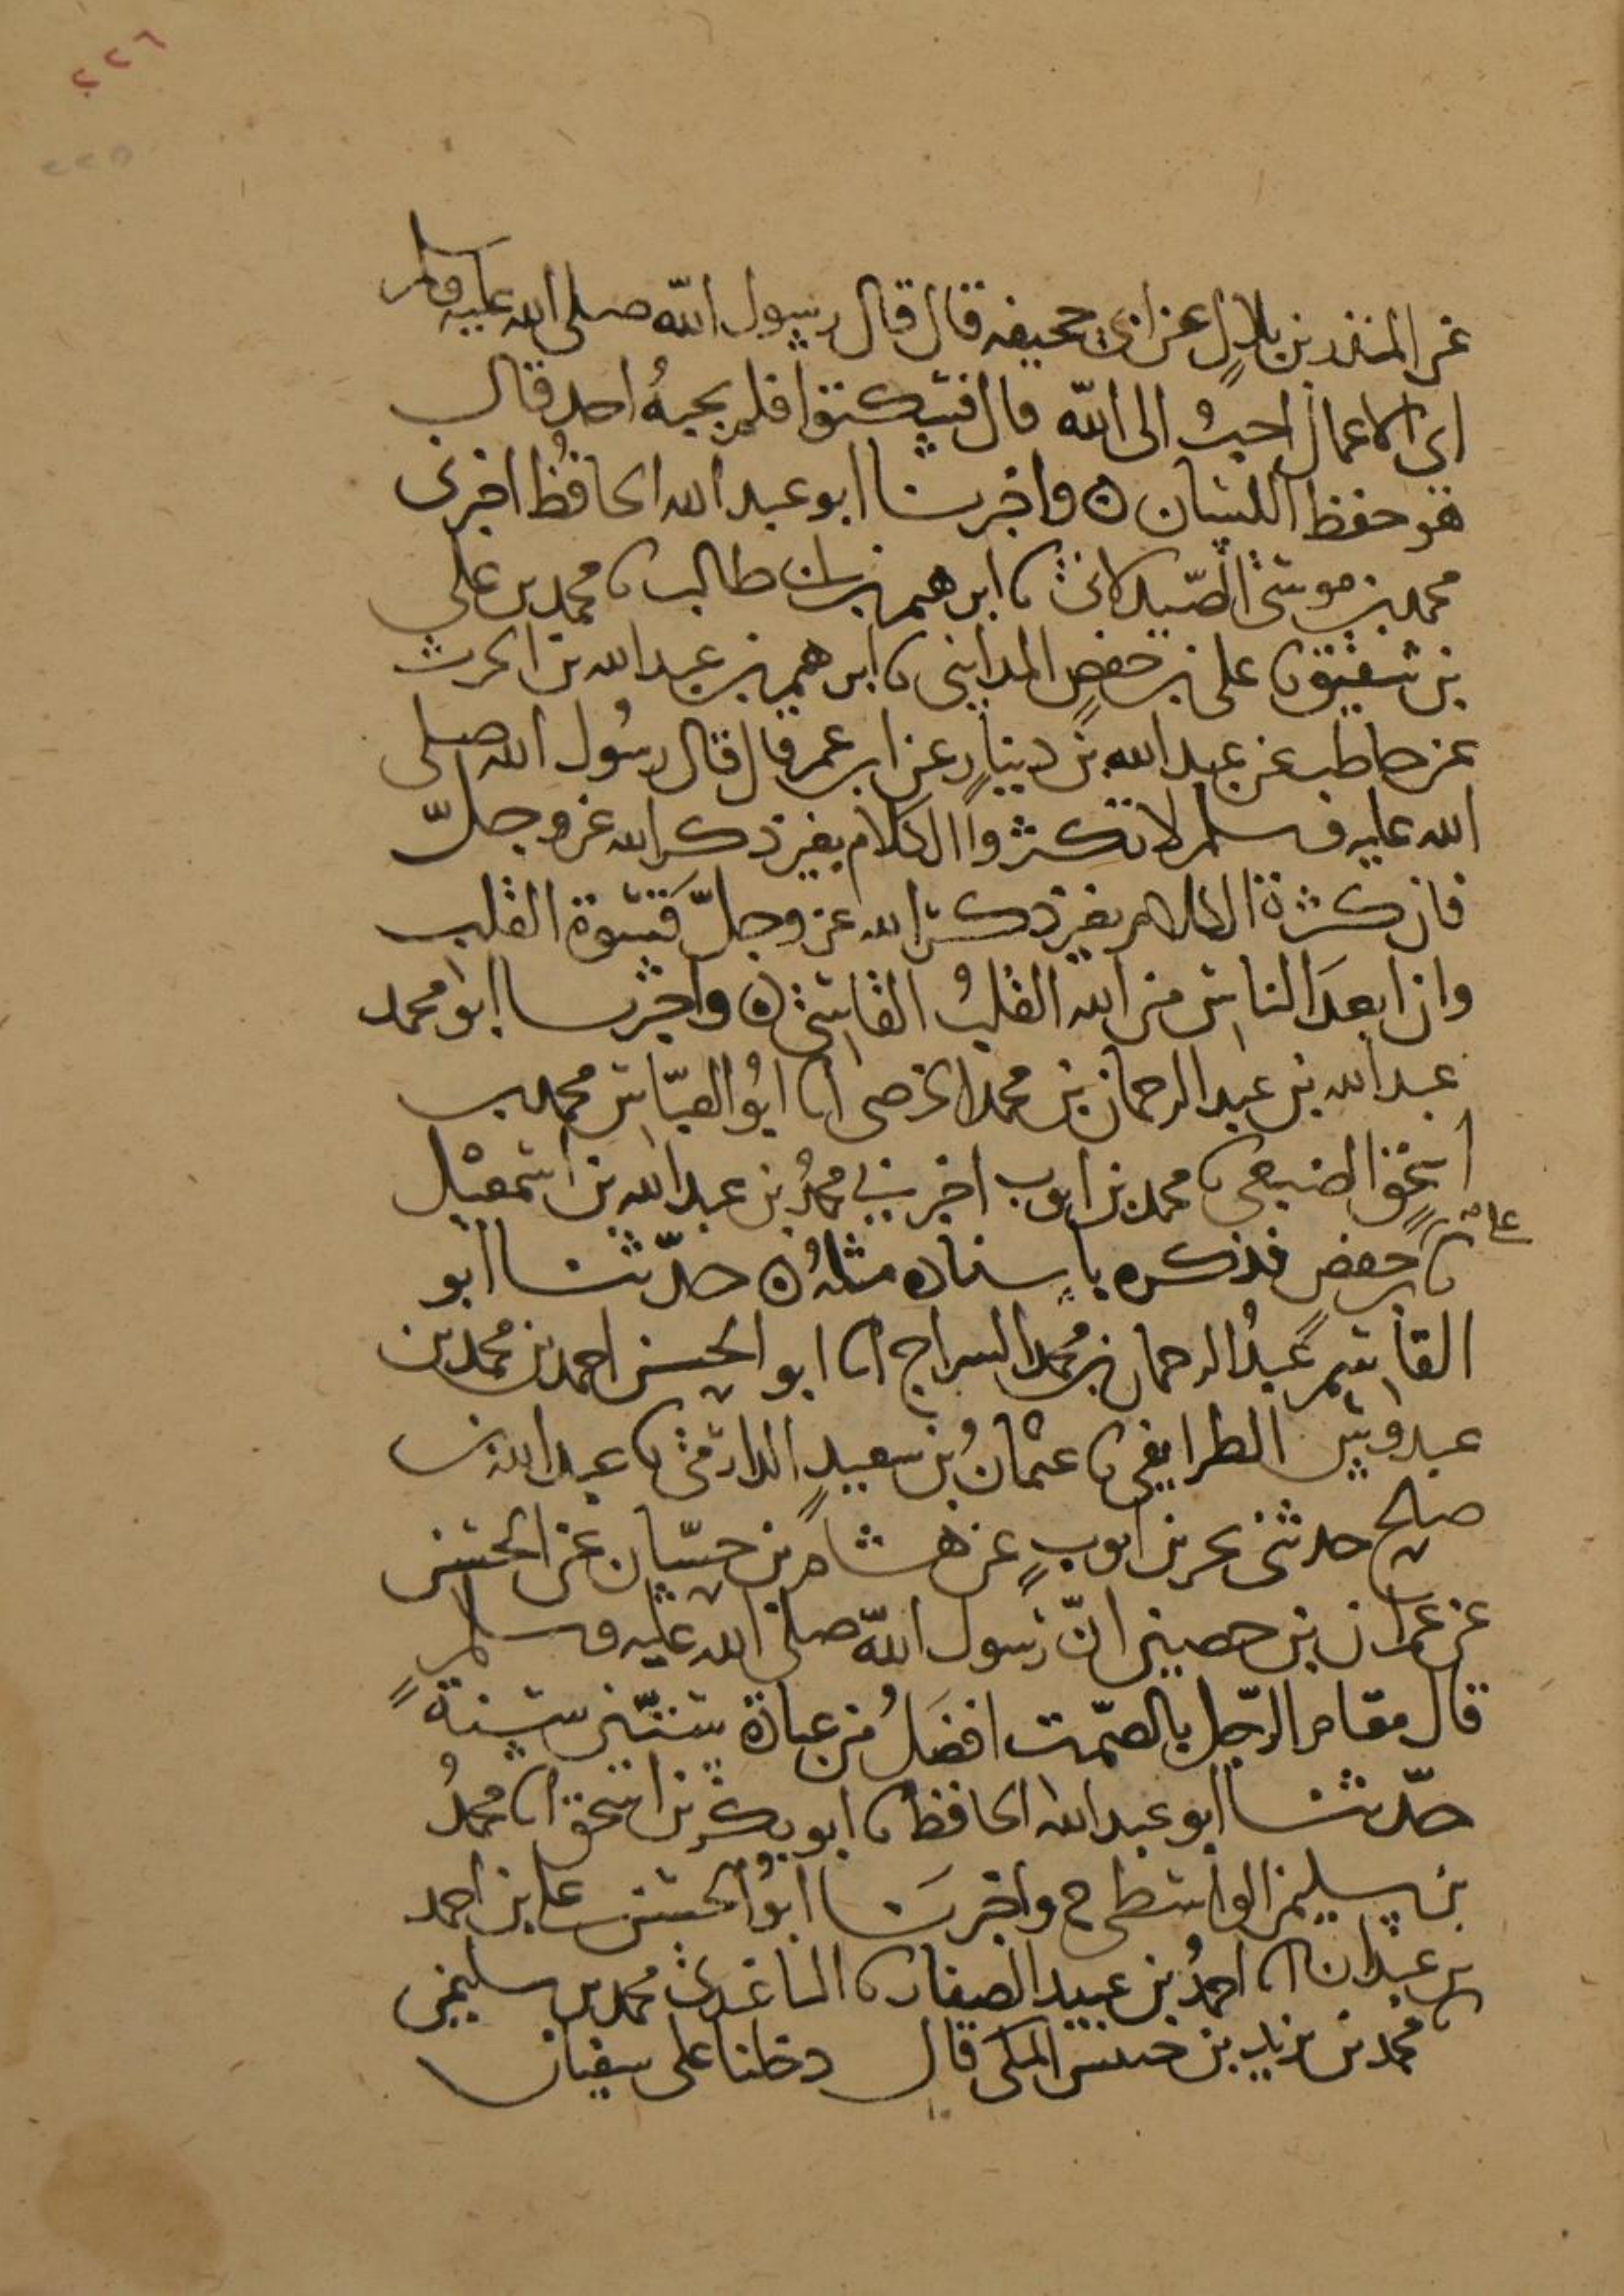 ٢٢٦
٢٢٥
عن المنذر بن بلال عن ابى جحيفه قال قال رسول الله صلى الله عليه وسلم
اى الاعمال احب الى الله قال فسكتوا فلم يجبه احد قال
هو حفظ اللسان ه واخبرنا ابو عبد الله الحافظ اخبرنى
محمد بن موسى الصيدلانى نا ابرهيم بن ابى طالب نا محمد بن على
بن شقيق نا على بن حفص المداينى نا ابرهيم بن عبد الله بن الحرث
بن حاطب عن عبد الله بن دينار عن ابن عمر قال قال رسول الله صلى
الله عليه وسلم لا تكثروا الكلام بغير ذكر الله عز وجل
فان كثرة الكلام بغير ذكر الله عز وجل قسوة القلب
وان ابعد الناس من الله القلب القاسى ه واخبرنا ابو محمد
عبد الله بن عبد الرحمان بن محمد الحرضى انا ابو العباس محمد بن
اسحق الضبعى نا محمد بن ايوب اخبرنى محمد بن عبد الله بن اسمعيل
على
نا بن حفص فذكره باسناده مثله ه حدثنا ابو
القاسم عبد الرحمان بن محمد السراج انا ابو الحسن احمد بن محمد بن
عبدوس الطرايفى نا عثمان بن سعيد الدارمى نا عبد الله بن
صالح حدثنى يحيى بن ايوب عن هشام بن حسان عن الحسن
عن عمران بن حصين ان رسول الله صلى الله عليه وسلم
قال مقام الرجل بالصمت افضل من عبادة ستين سنة
حدثنا ابو عبد الله الحافظ نا ابو بكر بن اسحق انا محمد
بن سليمن الواسطى ح واخبرنا ابو الحسن على بن احمد
بن عبدان انا احمد بن عبيد الصفار نا الباغندى محمد بن سليمن
نا محمد بن يزيد بن خنيس المكى قال دخلنا على سفيان